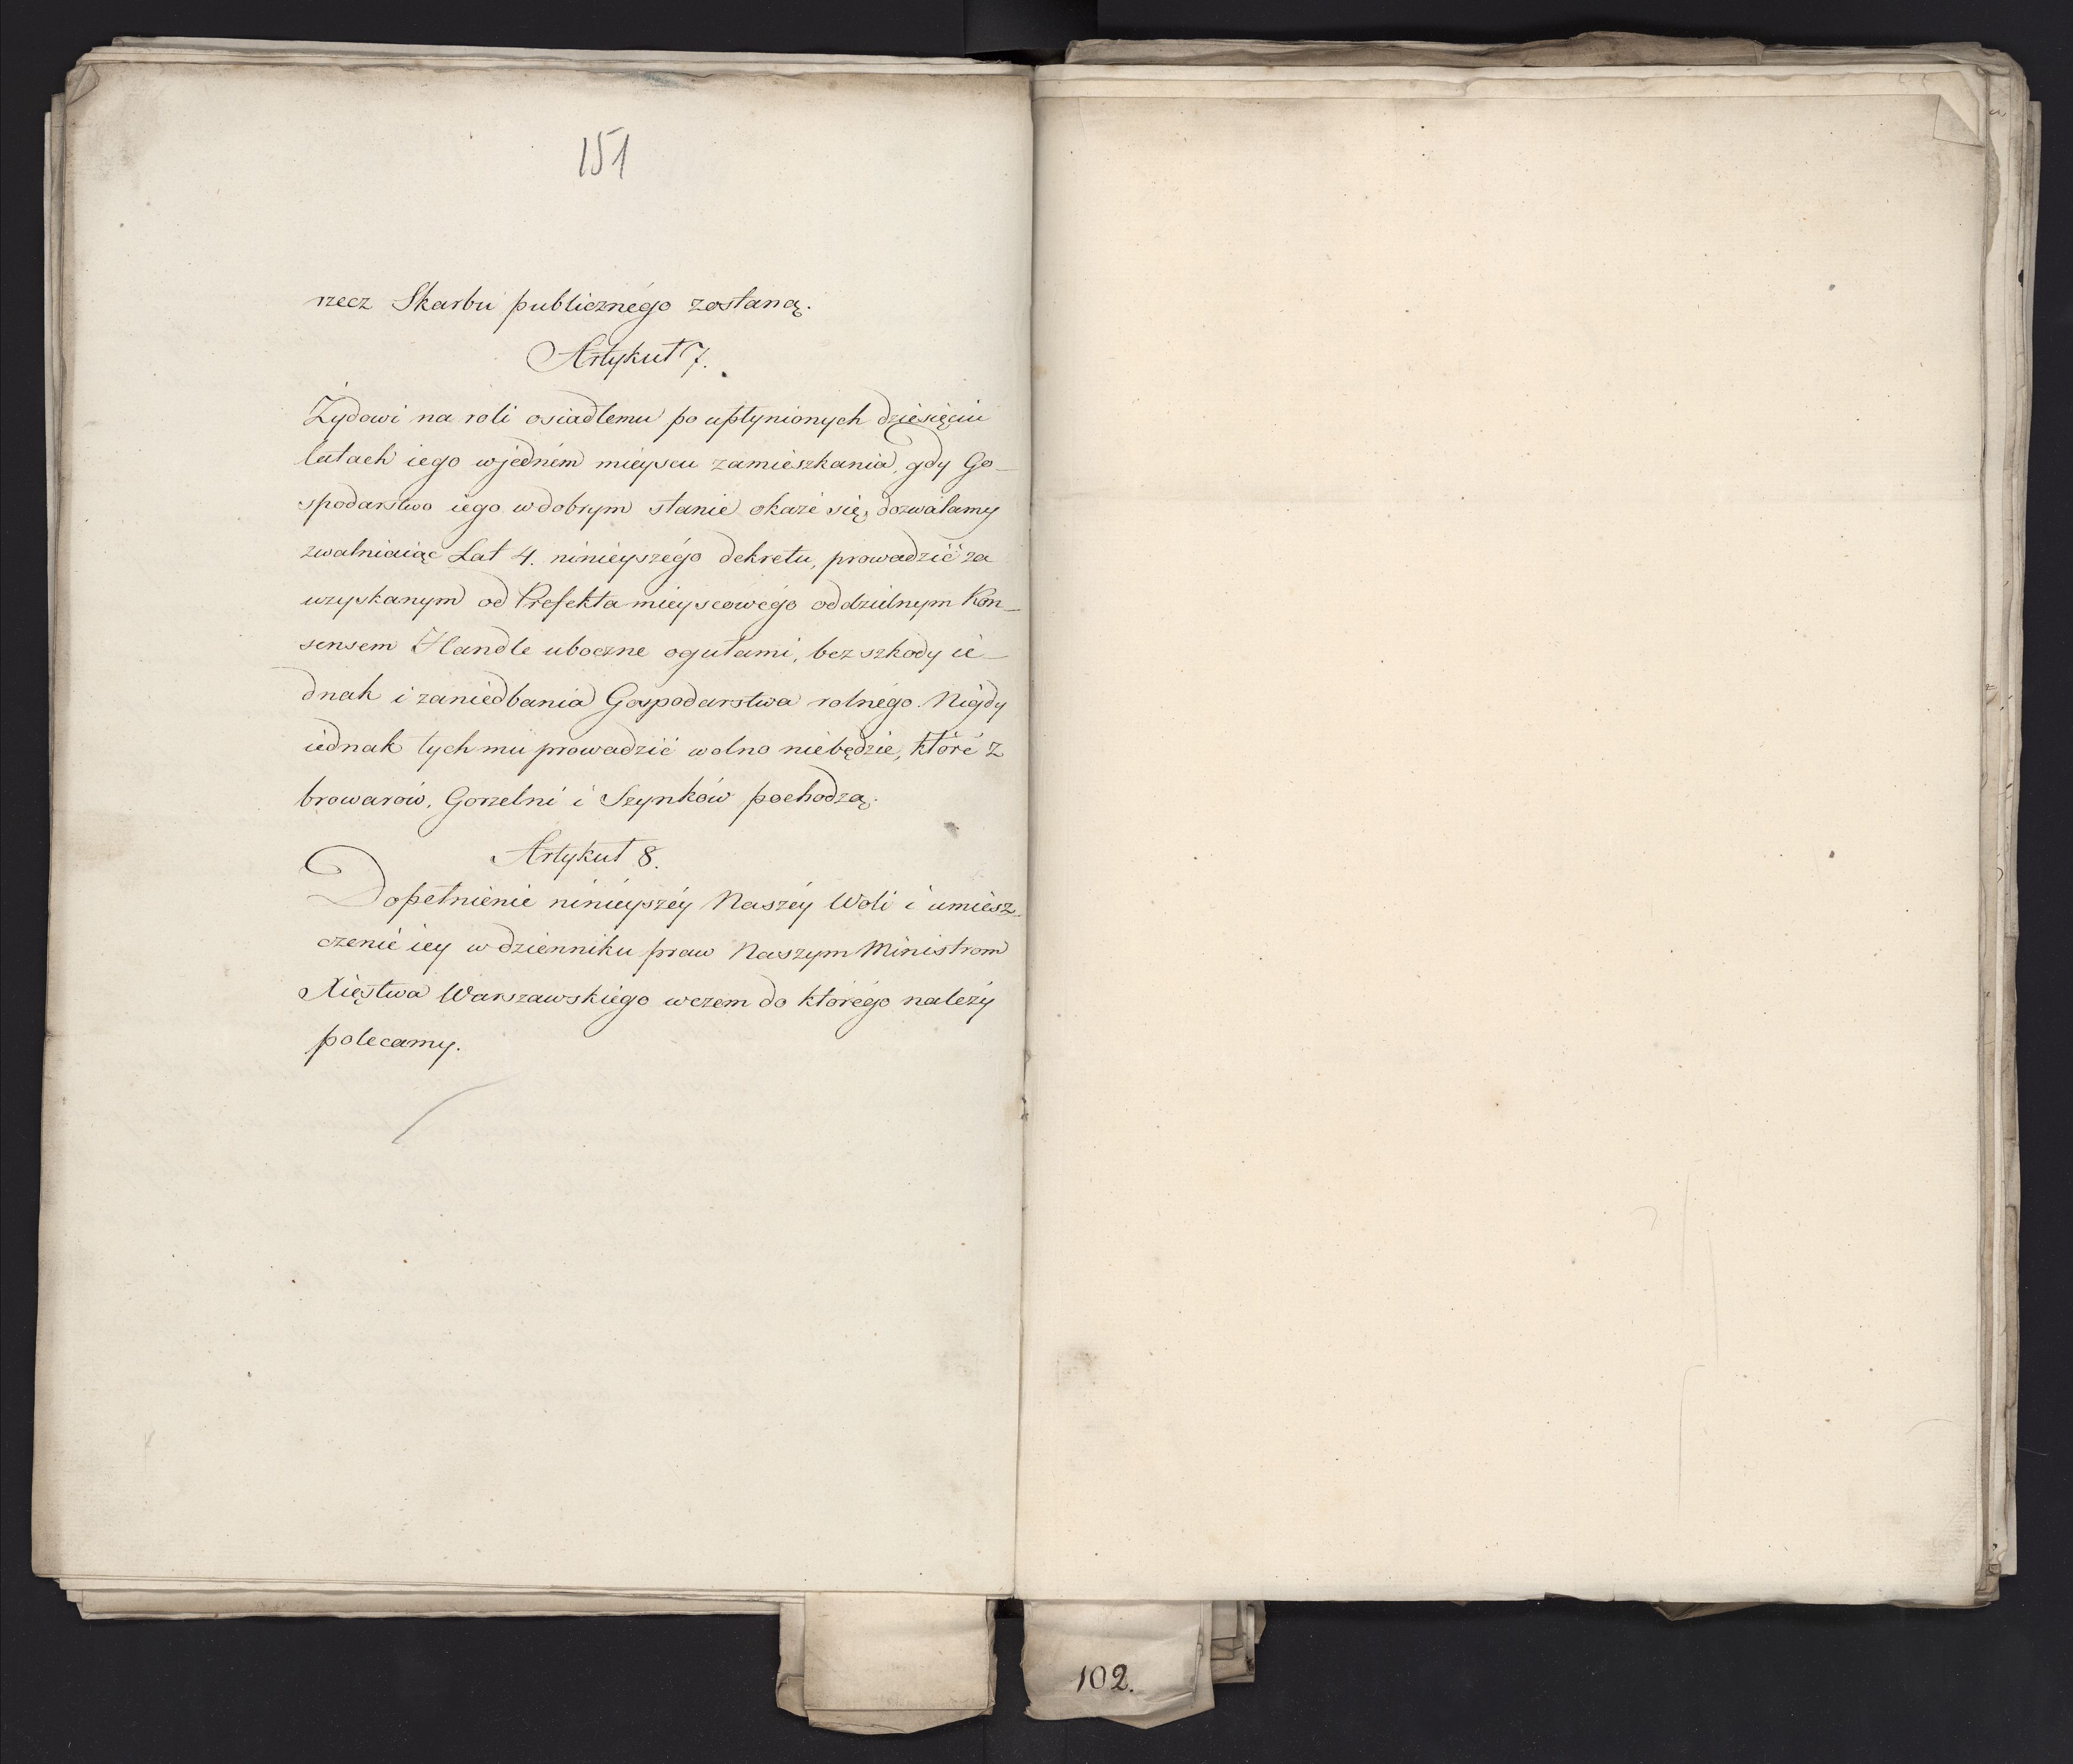 151
rzecz Skarbu publicznégo zostaną.
Artykuł 7.
Żydowi na roli osiadłemu po upłynionych dziesięciu
latach iego w jedném mieyscu zamieszkania, gdy Go-
spodarstwo iego w dobrym stanie okaże się, dozwalamy
zwalniaiąc Lat 4. ninieyszégo dekretu, prowadzić za
uzyskanym od Prefekta mieyscowégo oddzielnym Kon-
sensem Handle uboczne ogułami, bez szkody ie-
dnak i zaniedbania Gospodarstwa rolnégo. Nigdy
iednak tych mu prowadzić wolno niebędzie, któré z
browarów, Gorzelni i Szynków pochodzą.
Artykuł 8.
Dopełnienie ninieyszéy Naszéy Woli i umiesz-
czenie iey w dzienniku praw Naszym Ministrom
Xięstwa Warszawskiego wczem do którégo należy
polecamy.
102.